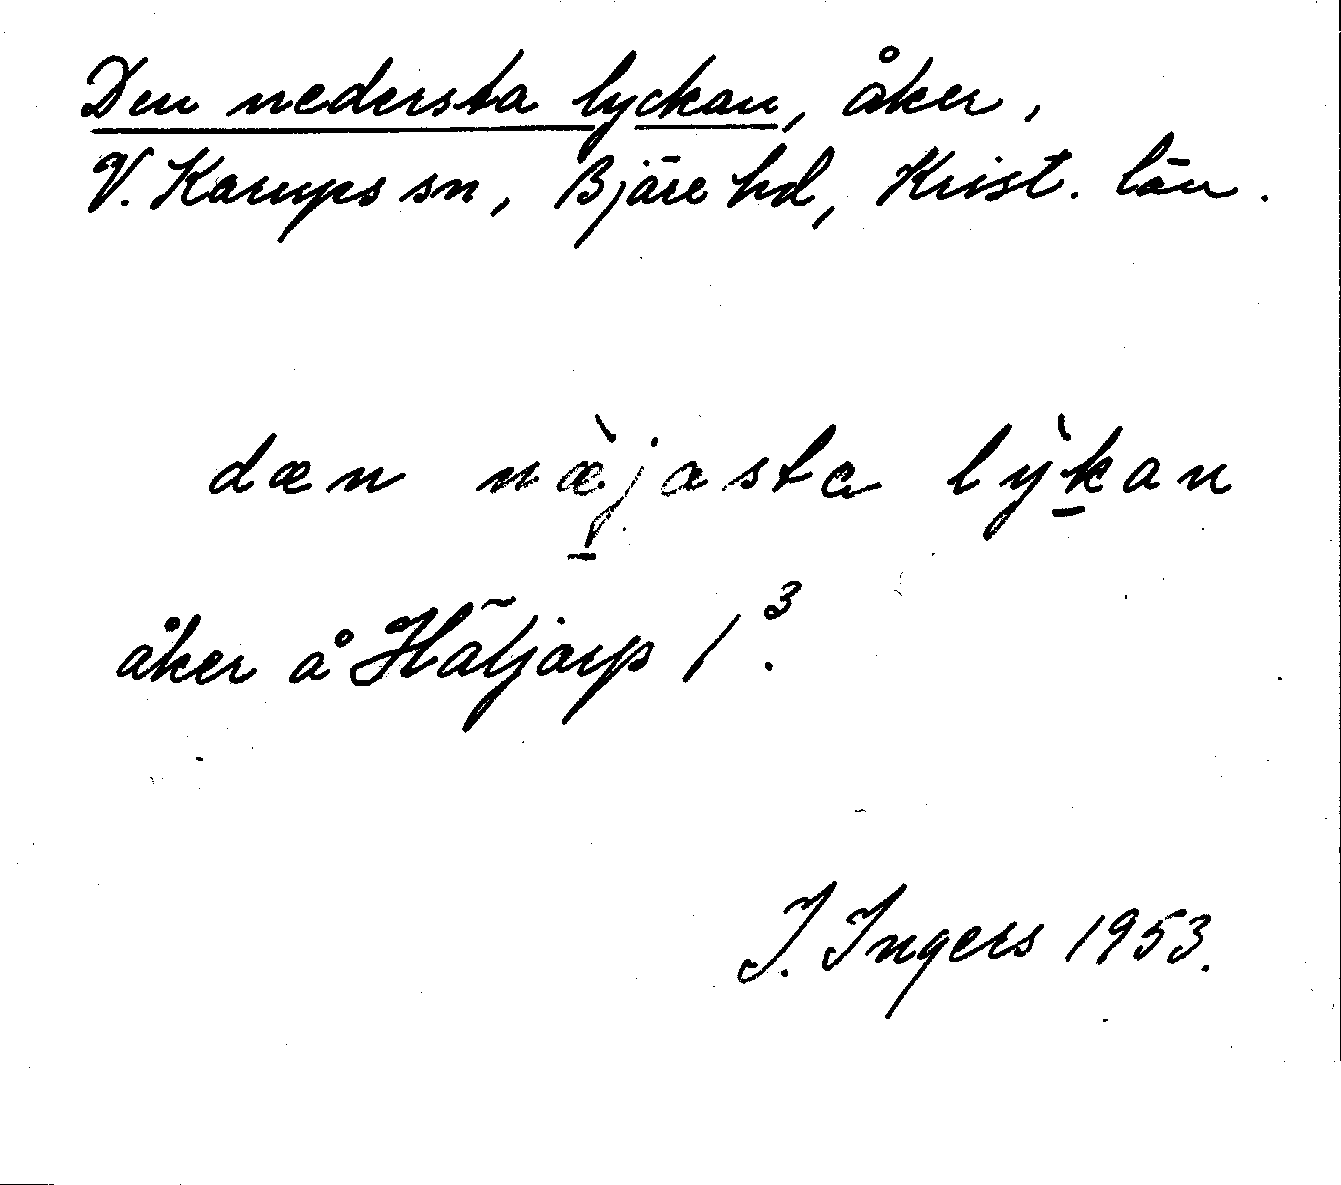 Den nedersta lyckan, åker,
V. Karups sn, Bjäre hd, Krist. län.
dæn næ̀jasta lỳkan
åker å Häljarp 1³.
I. Ingers 1953.